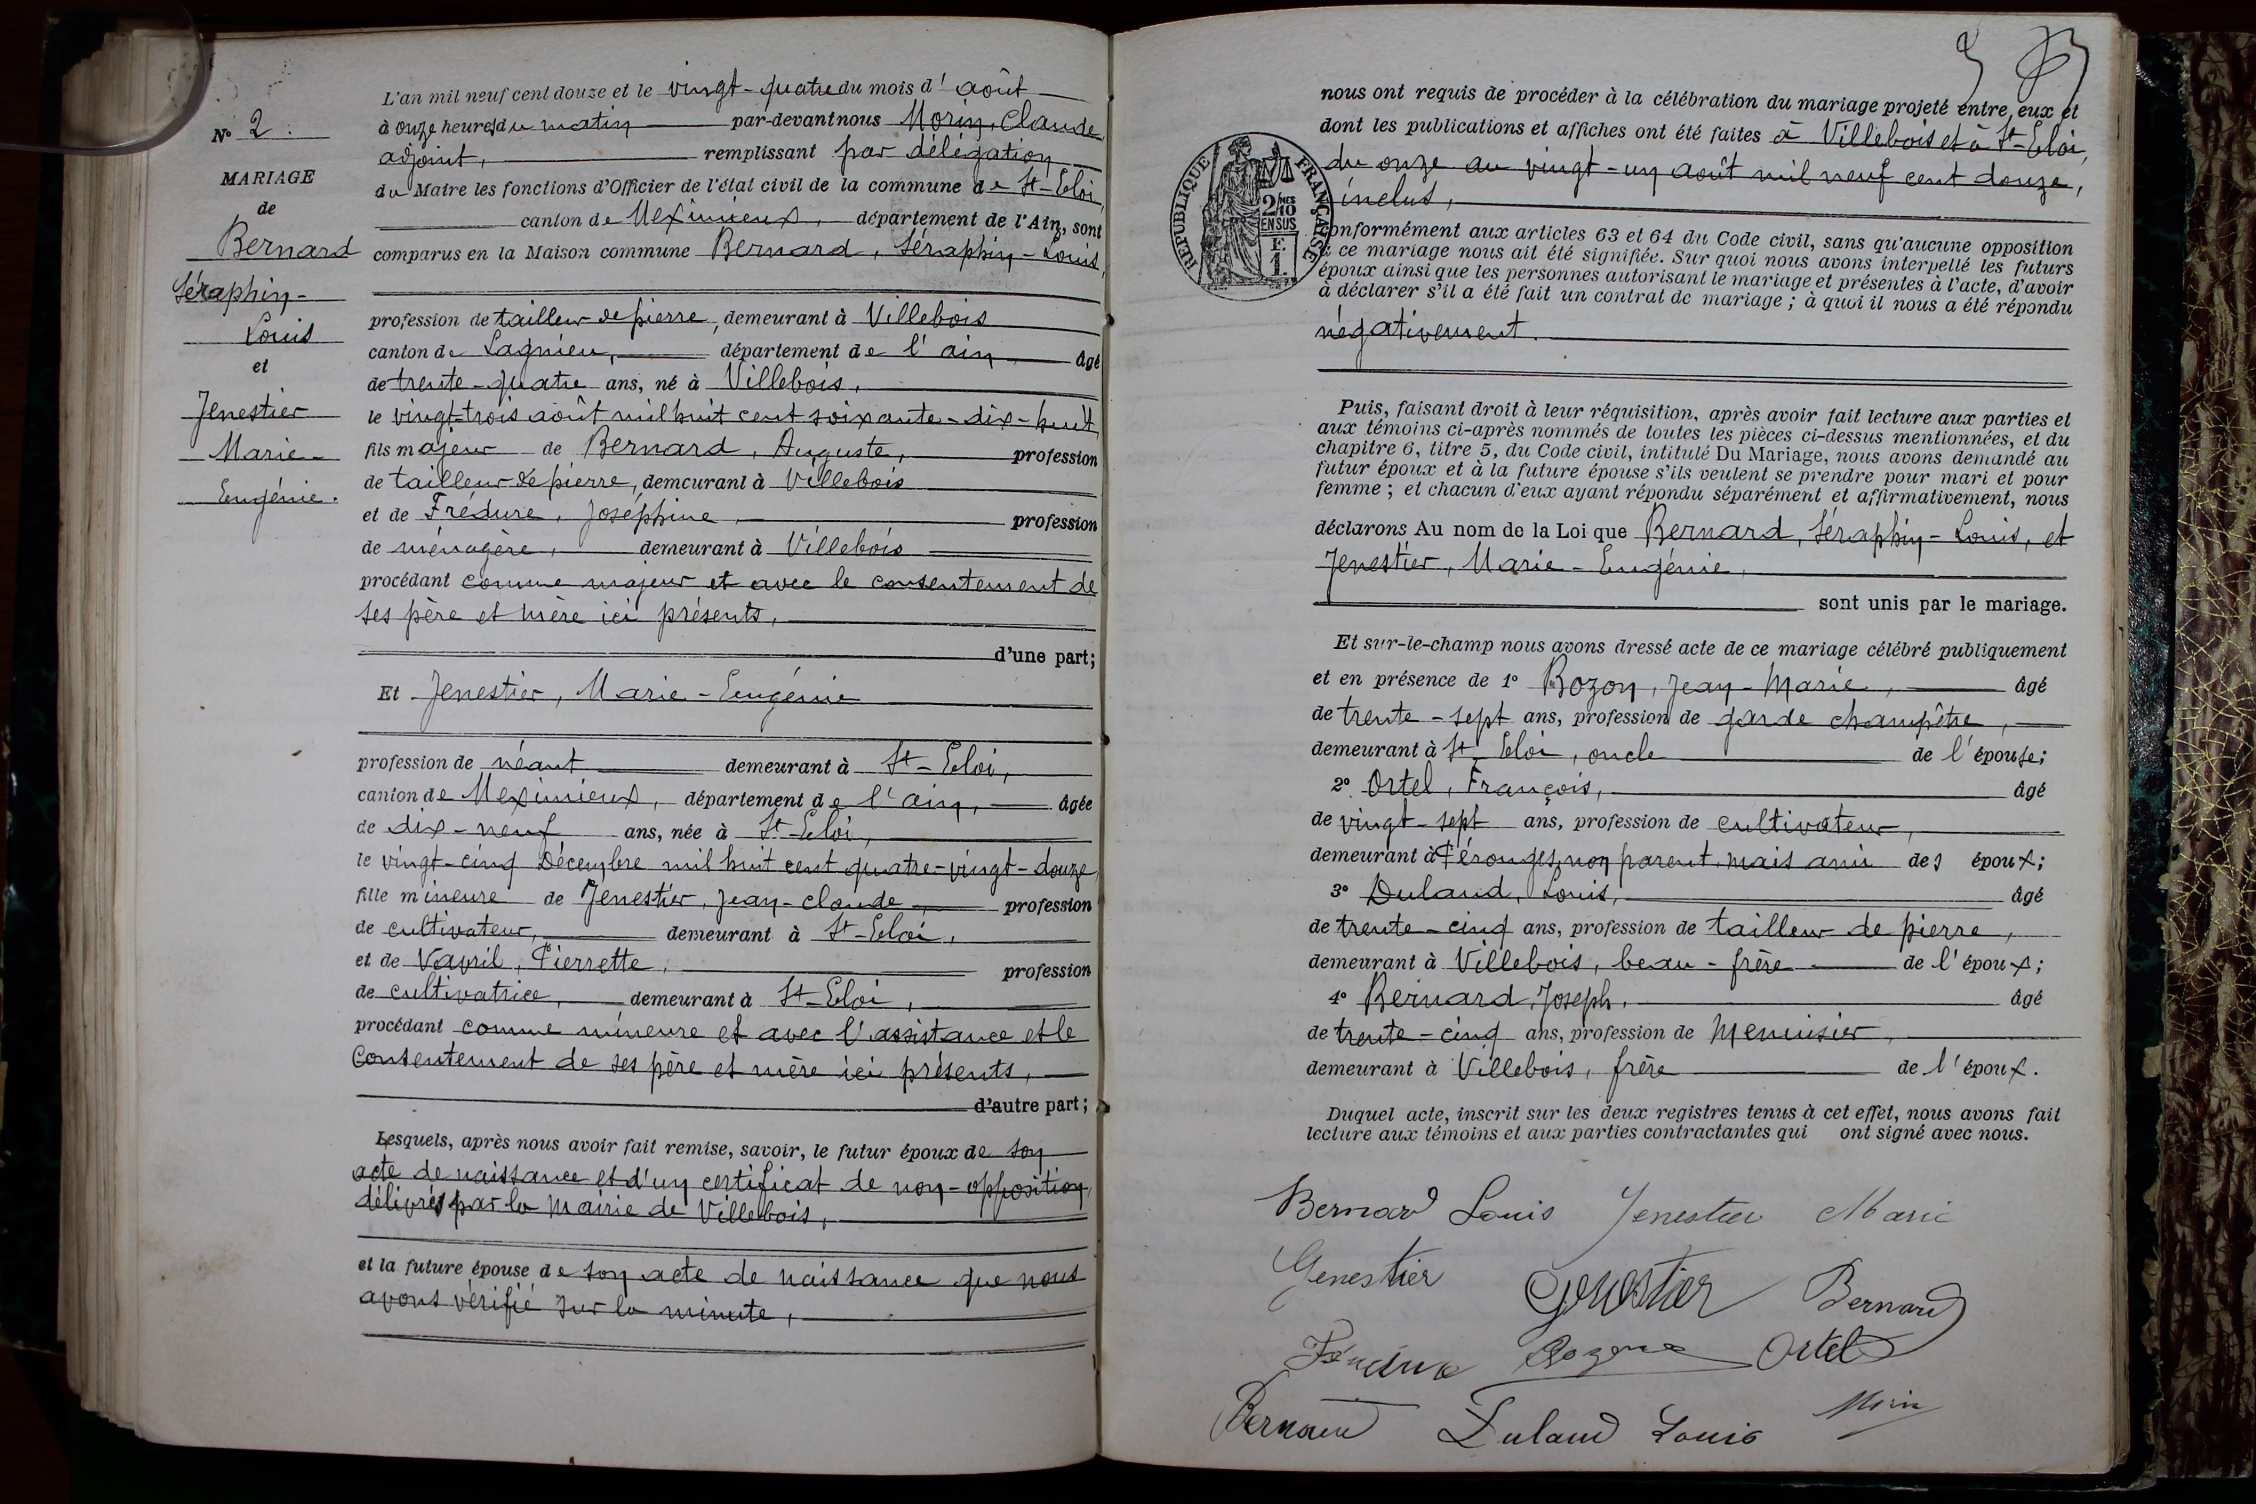 N° 2.
MARIAGE
de
Bernard
Séraphin-
Louis
et
Jenestier
Marie-
Eugénie.
L'an mil neuf cent douze et le vingt-quatre du mois d'août
à onze heures du matin par-devant nous Morin, Claude,
adjoint, remplissant par délégation
du Maire les fonctions d'Officier de l'état civil de la commune de St-Eloi,
canton de Meximieux, département de l'Ain, sont
comparus en la Maison commune Bernard, Séraphin-Louis,
profession de tailleur de pierre, demeurant à Villebois
canton de Lagnieu, département de l'ain âgé
de trente-quatre ans, né à Villebois,
le vingt-trois août mil huit cent soixante-dix-huit
fils majeur de Bernard, Auguste, profession
de tailleur de pierre, demeurant à Villebois
et de Frédure, Joséphine, profession
de ménagère, demeurant à Villebois
procédant comme majeur et avec le consentement de
ses père et mère ici présents,
d'une part;
Et Jenestier, Marie-Eugénie
profession de néant demeurant à St-Eloi,
canton de Meximieux, département de l'ain, âgée
de dix-neuf ans, née à St-Eloi,
le vingt-cinq Décembre mil huit cent quatre-vingt-douze,
fille mineure de Jenestier, Jean-Claude, profession
de cultivateur, demeurant à St-Eloi,
et de Vavril, Pierrette, profession
de cultivatrice, demeurant à St-Eloi,
procédant comme mineure et avec l'assistance et le
consentement de ses père et mère ici présents,
d'autre part;
Lesquels, après nous avoir fait remise, savoir, le futur époux de son
acte de naissance et d'un certificat de non-opposition,
délivrés par la Mairie de Villebois,
et la future épouse de son acte de naissance que nous
avons vérifié sur la minute,
nous ont requis de procéder à la célébration du mariage projeté entre eux et
dont les publications et affiches ont été faites à Villebois et à St-Eloi,
du onze au vingt-un août mil neuf cent douze,
inclus,
RÉPUBLIQUE FRANÇAISE
2/10 MES
EN SUS
E
1
conformément aux articles 63 et 64 du Code civil, sans qu'aucune opposition
à ce mariage nous ait été signifiée. Sur quoi nous avons interpellé les futurs
époux ainsi que les personnes autorisant le mariage et présentes à l'acte, d'avoir
à déclarer s'il a été fait un contrat de mariage; à quoi il nous a été répondu
négativement.
Puis, faisant droit à leur réquisition, après avoir fait lecture aux parties et
aux témoins ci-après nommés de toutes les pièces ci-dessus mentionnées, et du
chapitre 6, titre 5, du Code civil, intitulé Du Mariage, nous avons demandé au
futur époux et à la future épouse s'ils veulent se prendre pour mari et pour
femme; et chacun d'eux ayant répondu séparément et affirmativement, nous
déclarons Au nom de la Loi que Bernard, Séraphin-Louis, et
Jenestier, Marie-Eugénie,
sont unis par le mariage.
Et sur-le-champ nous avons dressé acte de ce mariage célébré publiquement
et en présence de 1° Bozon, Jean-Marie, âgé
de trente-sept ans, profession de garde champêtre,
demeurant à St-Eloi, oncle de l'épouse;
2° Ortel, François, âgé
de vingt-sept ans, profession de cultivateur,
demeurant à Pérouges, non parent, mais ami des époux;
3° Duland, Louis, âgé
de trente-cinq ans, profession de tailleur de pierre,
demeurant à Villebois, beau-frère de l'époux;
4° Bernard, Joseph, âgé
de trente-cinq ans, profession de Menuisier,
demeurant à Villebois, frère de l'époux.
Duquel acte, inscrit sur les deux registres tenus à cet effet, nous avons fait
lecture aux témoins et aux parties contractantes qui ont signé avec nous.
Bernard Louis Jenestier Marie
Genestier Genestier Bernard
Bozon Ortel
Bernard Duland Louis Morin